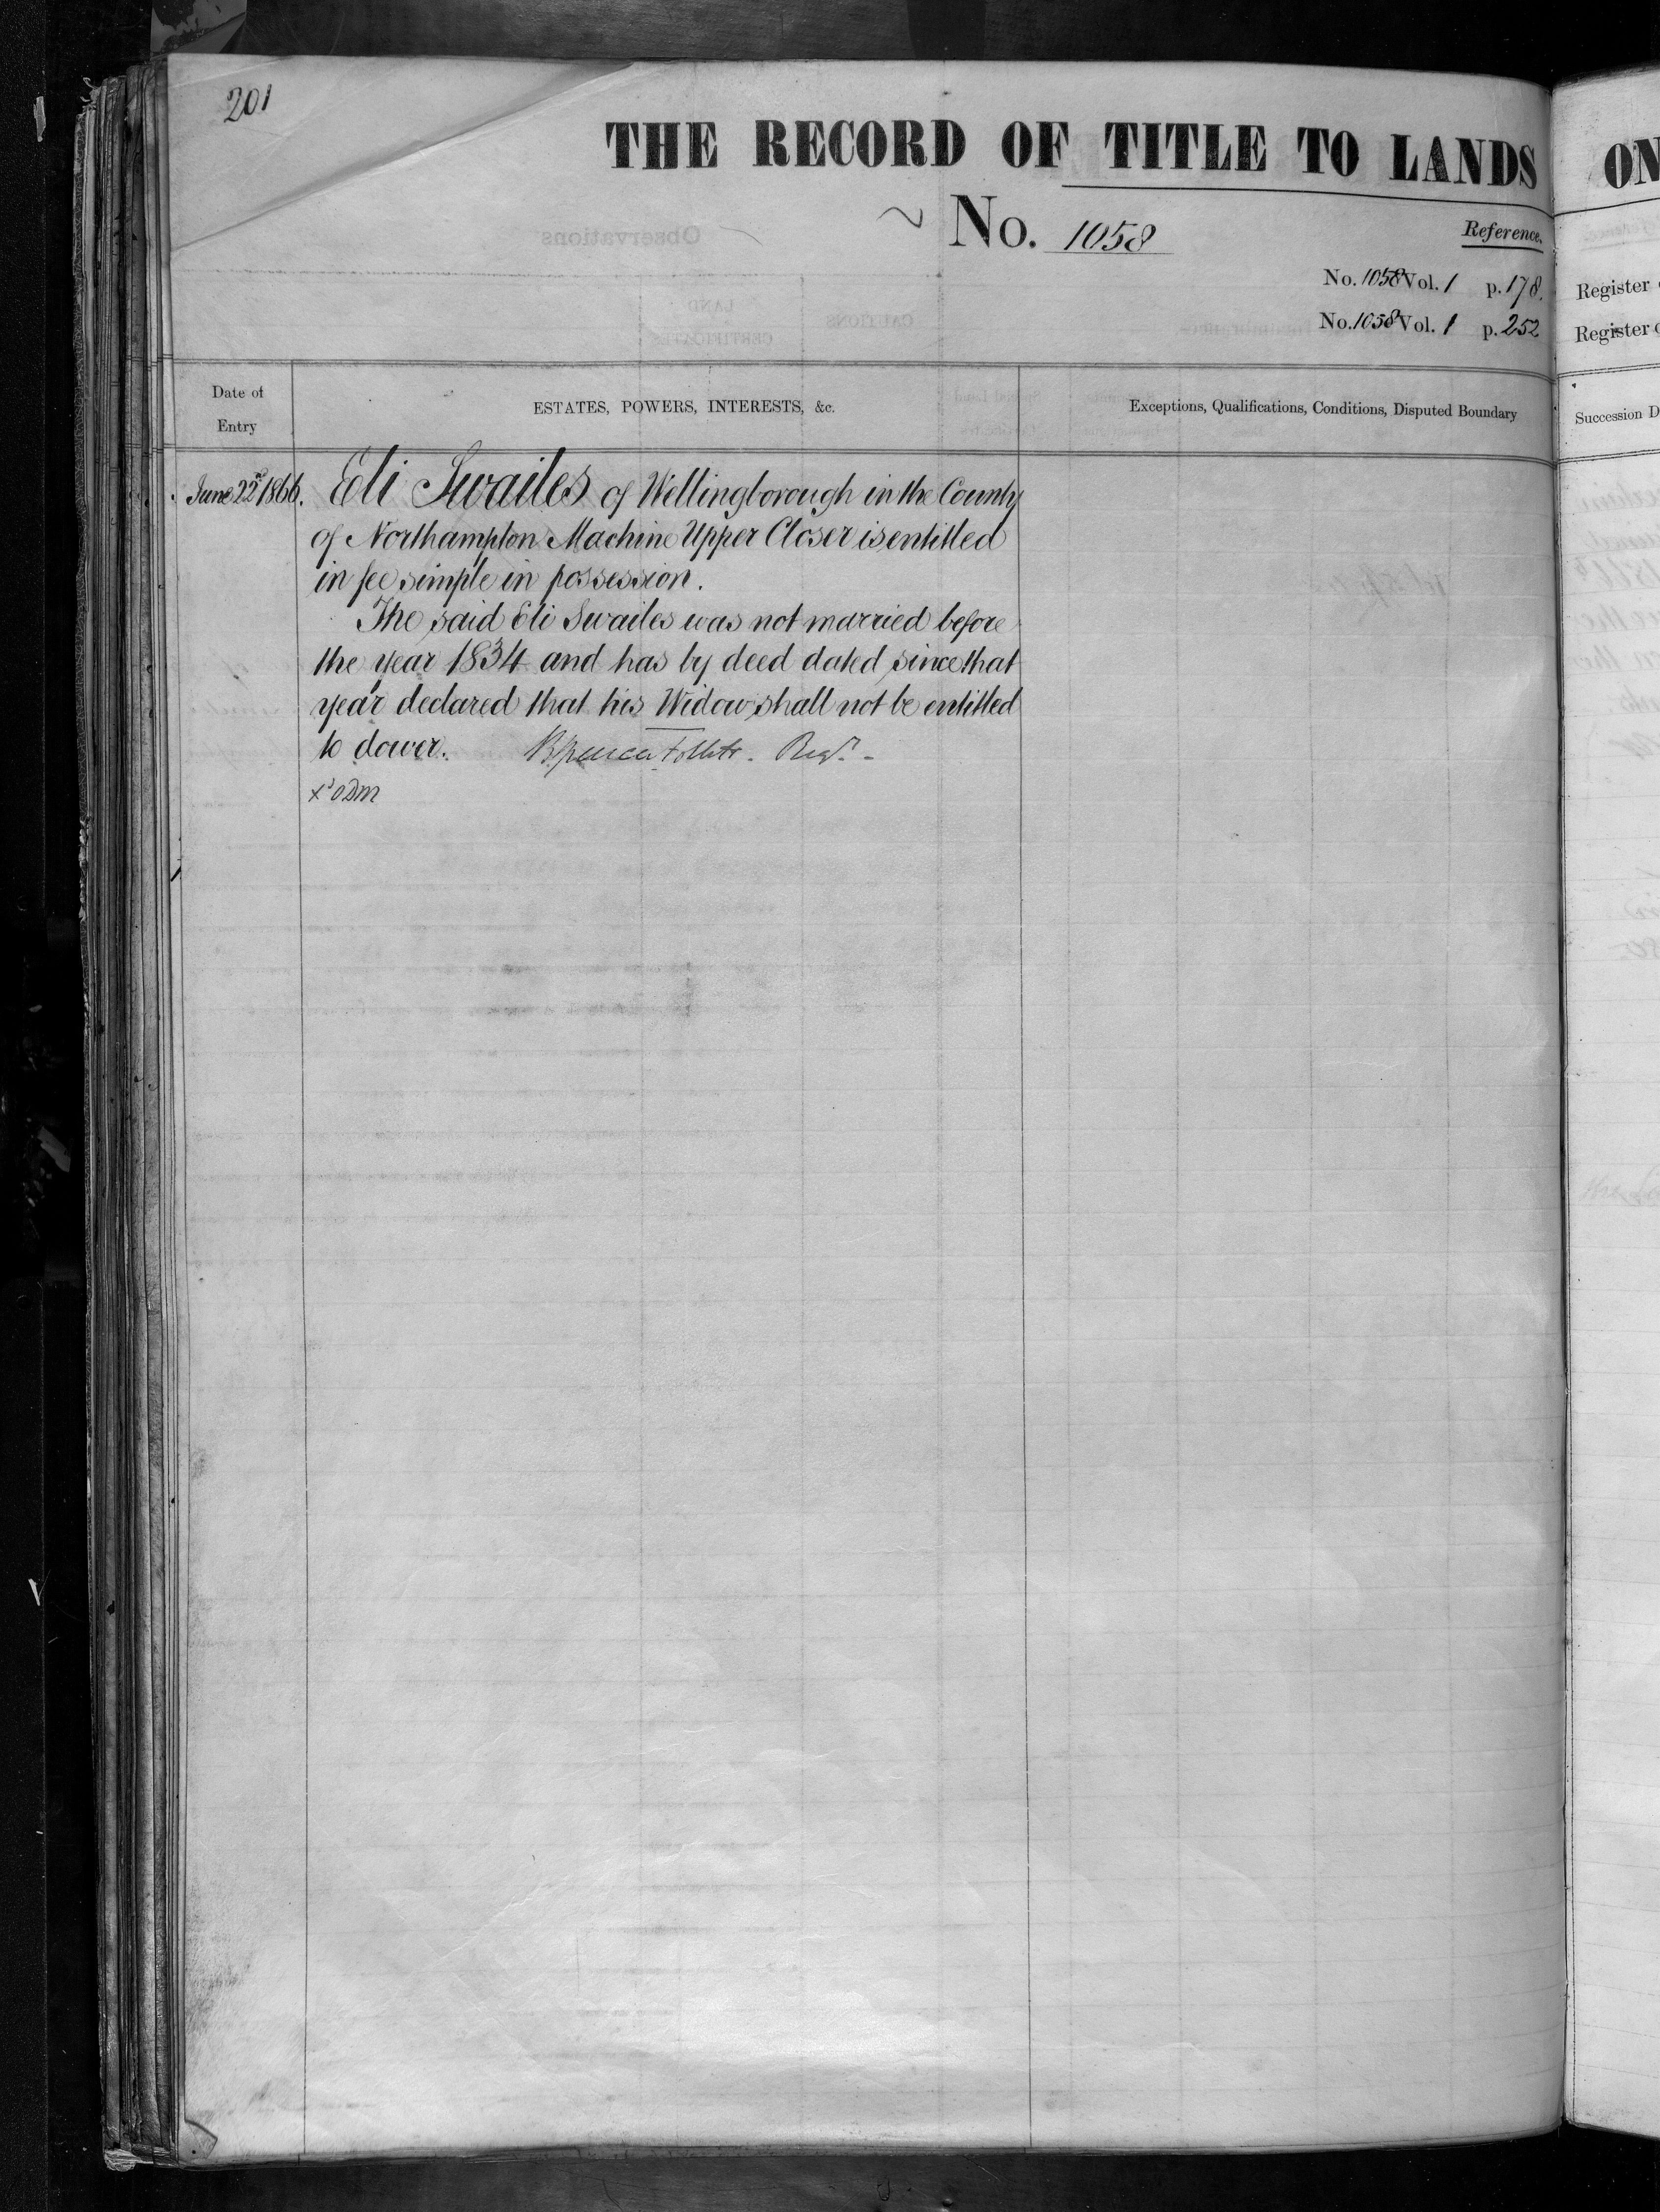 201
THE RECORD OF TITLE TO LANDS
No. 1058
Reference.
No. 1058 Vol. 1 p. 178.
No. 1058 Vol. 1 p. 252
Date of Entry
ESTATES, POWERS, INTERESTS, &c.
Exceptions, Qualifications, Conditions, Disputed Boundary
June 22nd 1866. Eli Swailes of Wellingborough in the County
of Northampton Machine Upper Closer is entitled
in fee simple in possession.
The said Eli Swailes was not married before
the year 1834 and has by deed dated since that
year declared that his Widow shall not be entitled
to dower. Brent Spencer Follett. Regr. -
ON
Register
Register
Succession D